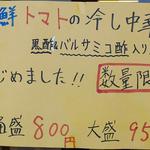 鮮トマトの冷し中華
黒酢&バルサミコ酢入り
じめました!!
数量限
盛 800円 大盛 95